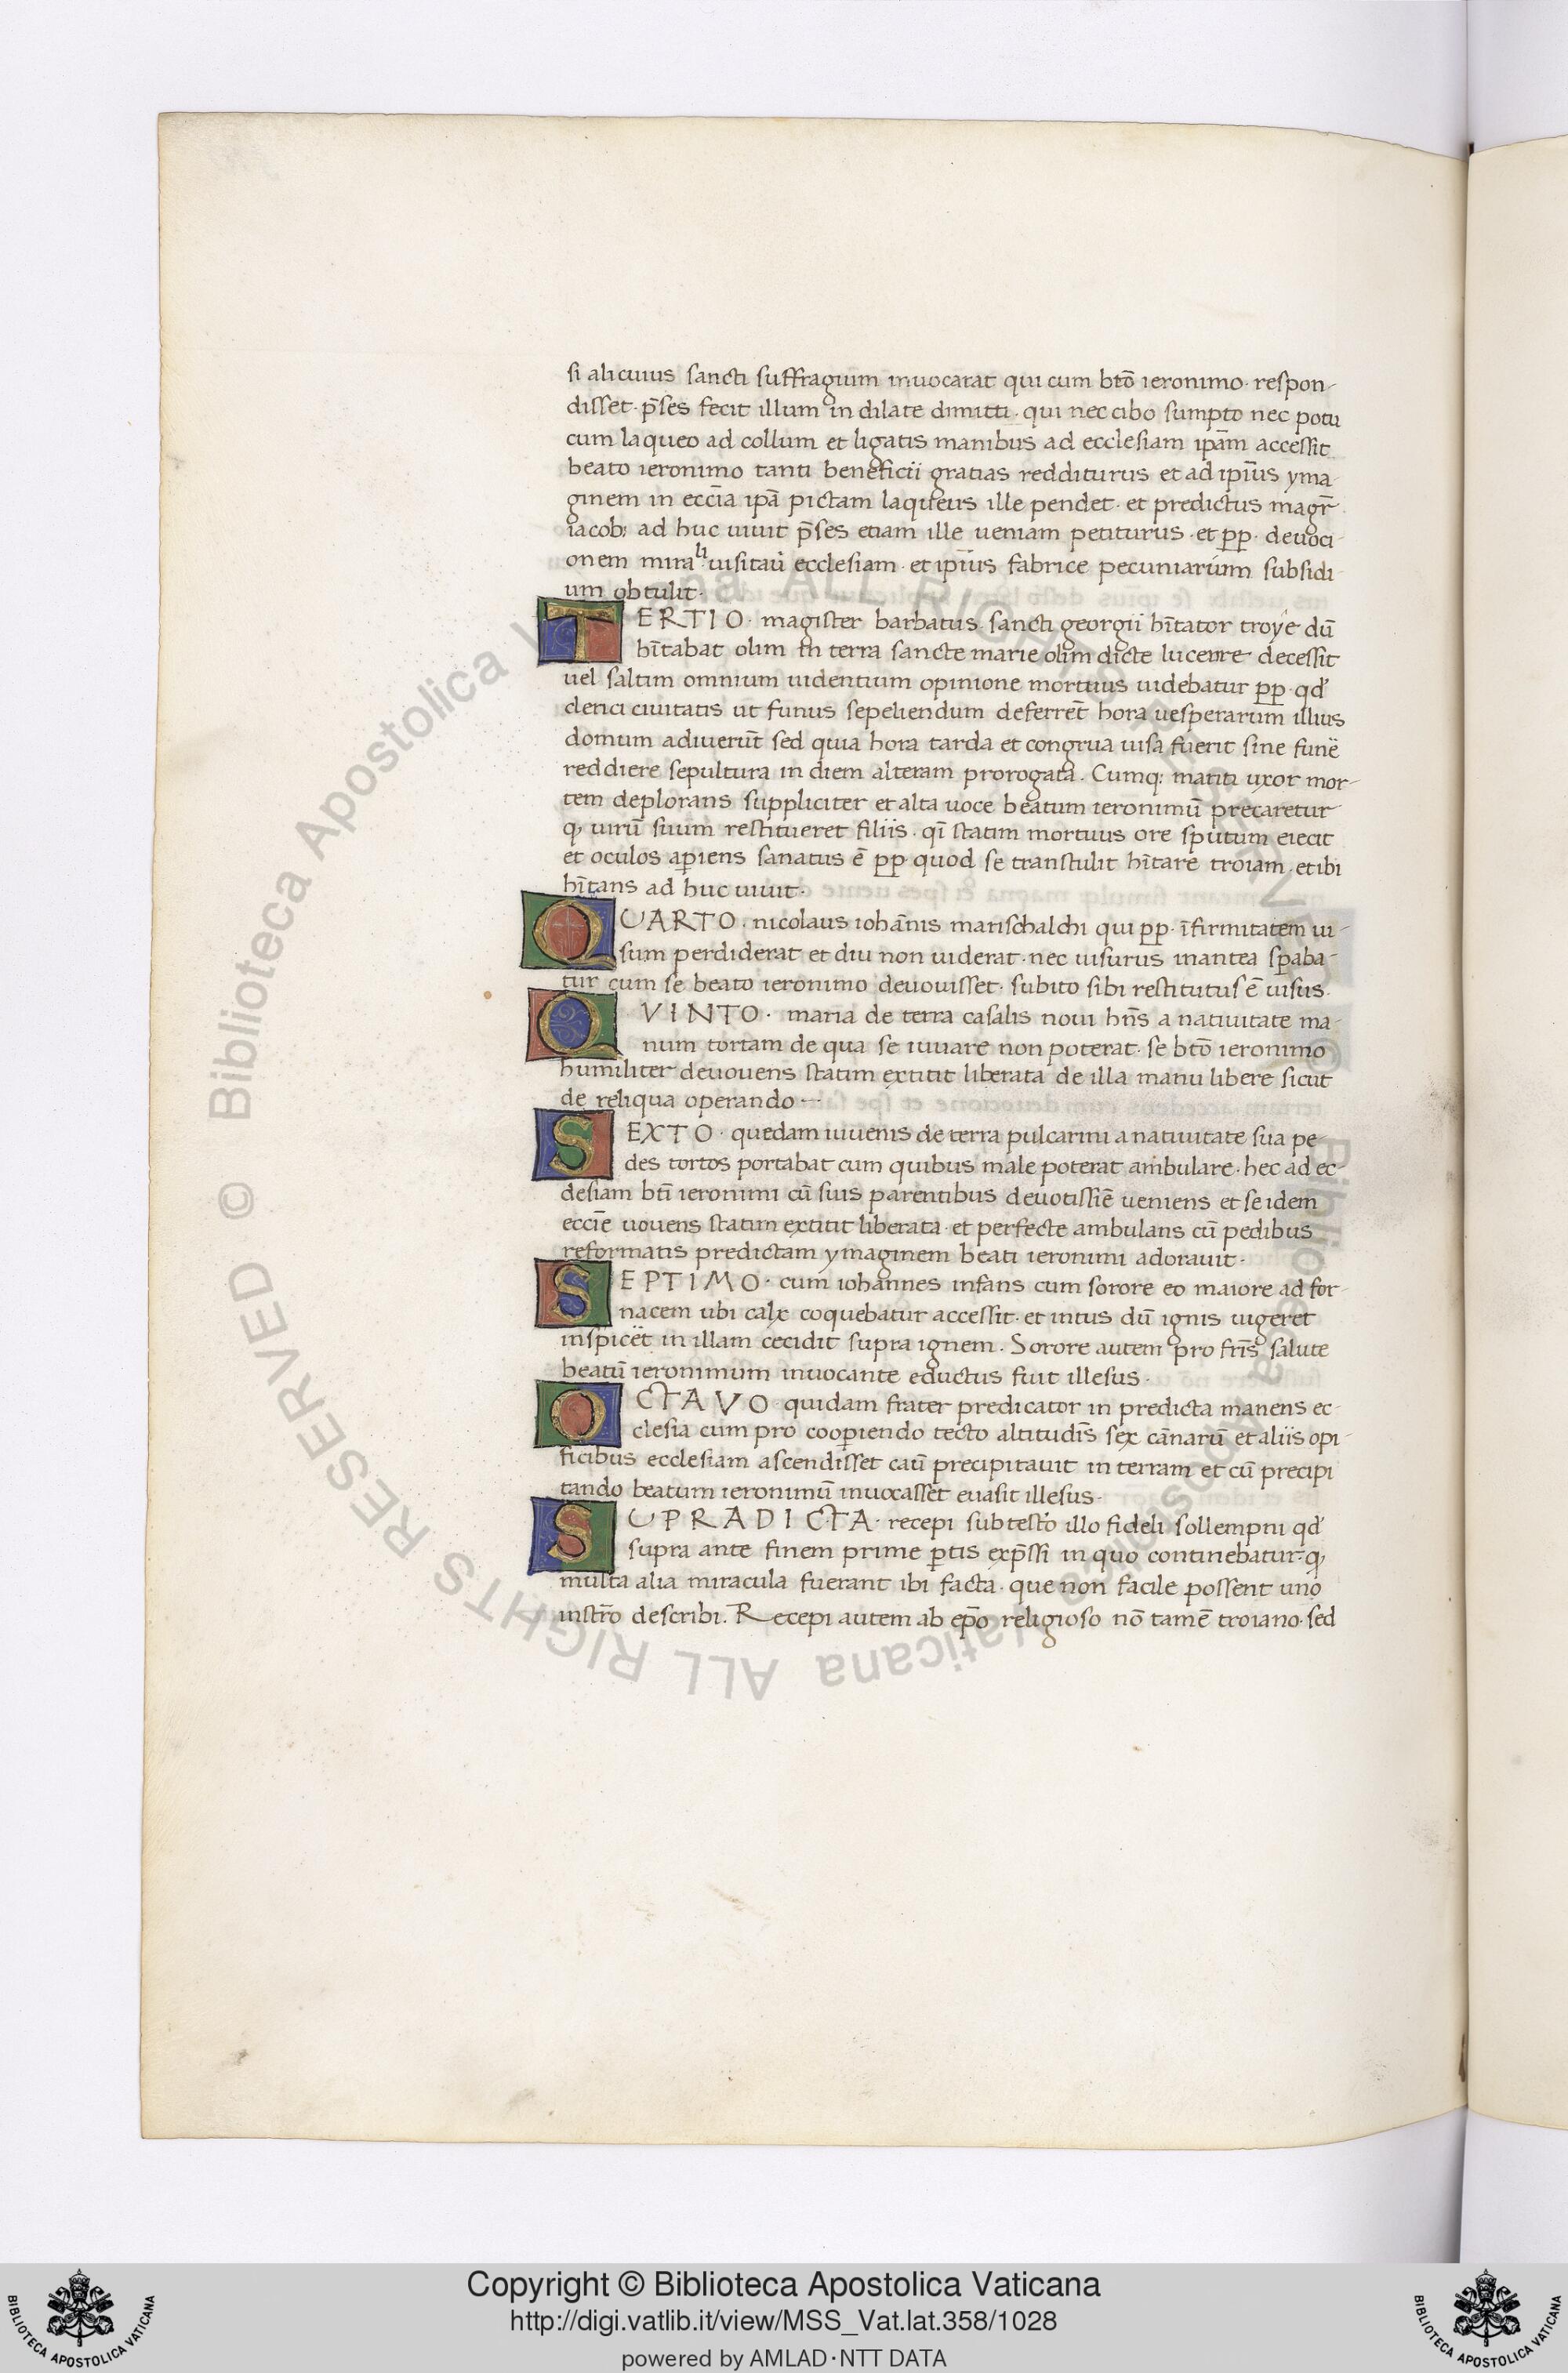 si alicuius sancti suffragium inuocarat qui cum btō ieronimo· respon-
disset· p̄ses fecit illum in dilate dimitti· qui nec cibo sumpto nec potu
cum laqueo ad collum et ligatis manibus ad ecclesiam ip̄am accessit
beato ieronimo tanti beneficii gratias redditurus et ad ipīus yma-
ginem in eccīa ipā pictam laqueus ille pendet· et predictus magr̄
iacob; ad huc uiuit p̄ses etiam ille ueniam petiturus· et pp̱· deuoci-
onem mira^li· uisitaū ecclesiam· et ipīus fabrice pecuniarum subsidi-
um obtulit·
TERTIO· magister barbatus sancti georgii hītator troye dū
hītabat olim in terra sancte marie olim dicte lucerre decessit
uel saltim omnium uidentium opinione mortuus uidebatur pp̱· qd'
clerici ciuitatis ut funus sepeliendum deferrēt hora uesperarum illius
domum adiuerūt sed quia hora tarda et congrua uisa fuerit sine funē
reddiere sepultura in diem alteram prorogata. Cumq; mariti uxor mor-
tem deplorans suppliciter et alta uoce beatum ieronimū precaretur
q, uirū suum restitueret filiis· qī statim mortuus ore sputum eiecit
et oculos ap̱iens sanatus ē pp̱· quod se transtulit hītare troiam· et ibi
hītans ad huc uiuit·
QUARTO· nicolaus iohānis marischalchi qui pp̱· īfirmitatem ui-
sum perdiderat et diu non uiderat· nec uisurus inantea sp̱aba-
tur cum se beato ieronimo deuouisset· subito sibi restitutus ē uisus·
QVINTO· maria de terra casalis noui hn̄s a natiuitate ma-
num tortam de qua se iuuare non poterat· se btō ieronimo
humiliter deuouens statim extitit liberata de illa manu libere sicut
de reliqua operando—·
SEXTO· quedam iuuenis de terra pulcarini a natiuitate sua pe-
des tortos portabat cum quibus male poterat ambulare· hec ad ec-
clesiam btī ieronimi cū suis parentibus deuotissīe ueniens et se idem
eccīe uouens statim extitit liberata· et perfecte ambulans cū pedibus
reformatis predictam ymaginem beati ieronimi adorauit·
SEPTIMO· cum iohannes infans cum sorore eo maiore ad for-
nacem ubi calx coquebatur accessit· et intus dū ignis uigeret
inspicēt in illam cecidit supra ignem. Sorore autem pro frīs salute
beatū ieronimum inuocante eductus fuit illesus·
OCTAVO· quidam frater predicator in predicta manens ec-
clesia cum pro coop̱iendo tecto altitudīs sex cānarū et aliis opi-
ficibus ecclesiam ascendisset caū precipitauit in terram et cū precipi
tando beatum ieronimū inuocasset euasit illesus·
SUPRADICTA· recepi sub testō illo fideli sollempni qd'
supra ante finem prime p̱tis exp̄ssi in quo continebatur· q,
multa alia miracula fuerant ibi facta· que non facile possent uno
instr̄o describi. Recepi autem ab ep̄o religioso nō tamē troiano· sed
© Biblioteca Apostolica Vaticana ALL RIGHTS RESERVED
Copyright © Biblioteca Apostolica Vaticana
http://digi.vatlib.it/view/MSS_Vat.lat.358/1028
powered by AMLAD·NTT DATA
BIBLIOTECA APOSTOLICA VATICANA
BIBLIOTECA APOSTOLICA VATICANA